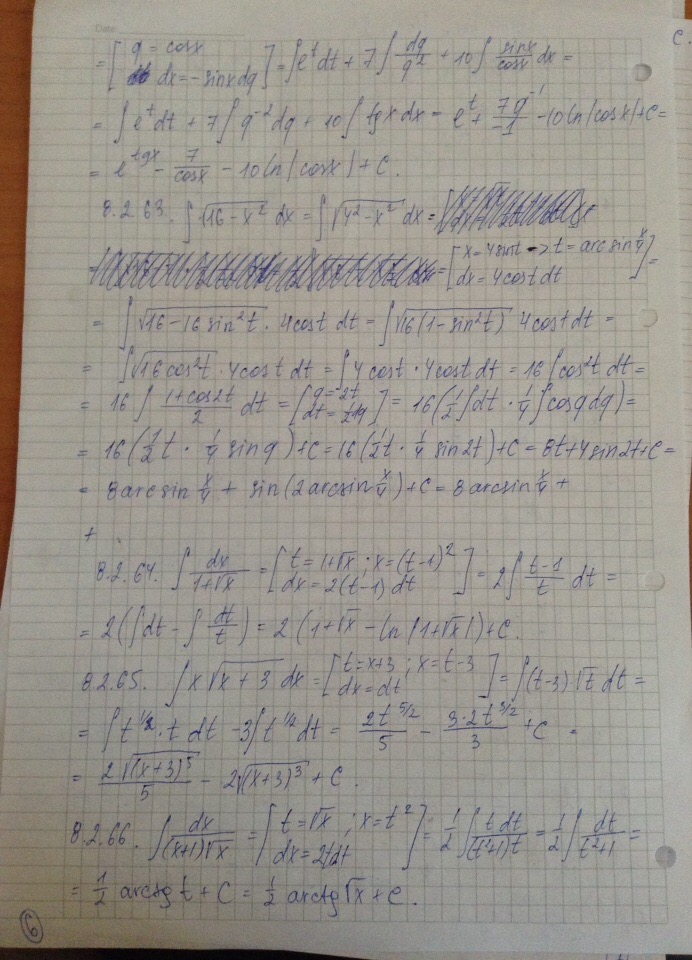 Date
= [ q = cosx
dx = -sinxdq ] = ∫e^t dt + 7∫ dq/q² + 10∫ sinx/cosx dx =
= ∫e^t dt + 7∫q⁻² dq + 10∫tgx dx = e^t + 7q⁻¹/-1 - 10ln|cosx| + C =
= e^tgx - 7/cosx - 10ln|cosx| + C.
8.2.63. ∫√(16-x²) dx = ∫√(4²-x²) dx =
= [ x = 4sint → t = arcsin x/4
dx = 4cost dt ] =
= ∫√(16-16sin²t) · 4cost dt = ∫√(16(1-sin²t)) 4cost dt =
= ∫√(16cos²t) · 4cost dt = ∫4cost · 4cost dt = 16∫cos²t dt =
= 16∫ (1+cos2t)/2 dt = [ q = 2t
dt = 1/2 dq ] = 16(1/2∫dt · 1/4∫cosqdq) =
= 16(1/2t · 1/4 sinq) + C = 16(1/2t · 1/4 sin2t) + C = 8t + 4sin2t + C =
= 8arcsin x/4 + sin(2arcsin x/4) + C = 8arcsin x/4 +
+
8.2.64. ∫ dx/(1+√x) = [ t = 1+√x ; x = (t-1)²
dx = 2(t-1)dt ] = 2∫ (t-1)/t dt =
= 2(∫dt - ∫ dt/t) = 2(1+√x - ln|1+√x|) + C.
8.2.65. ∫x√(x+3) dx = [ t = x+3 ; x = t-3
dx = dt ] = ∫(t-3)√t dt =
= ∫t^1/2 · t dt - 3∫t^1/2 dt = 2t^5/2/5 - 3·2t^3/2/3 + C =
= 2√((x+3)⁵)/5 - 2√((x+3)³) + C.
8.2.66. ∫ dx/((x+1)√x) = [ t = √x ; x = t²
dx = 2tdt ] = 1/2∫ t dt/((t²+1)t) = 1/2∫ dt/(t²+1) =
= 1/2 arctg t + C = 1/2 arctg√x + C.
6